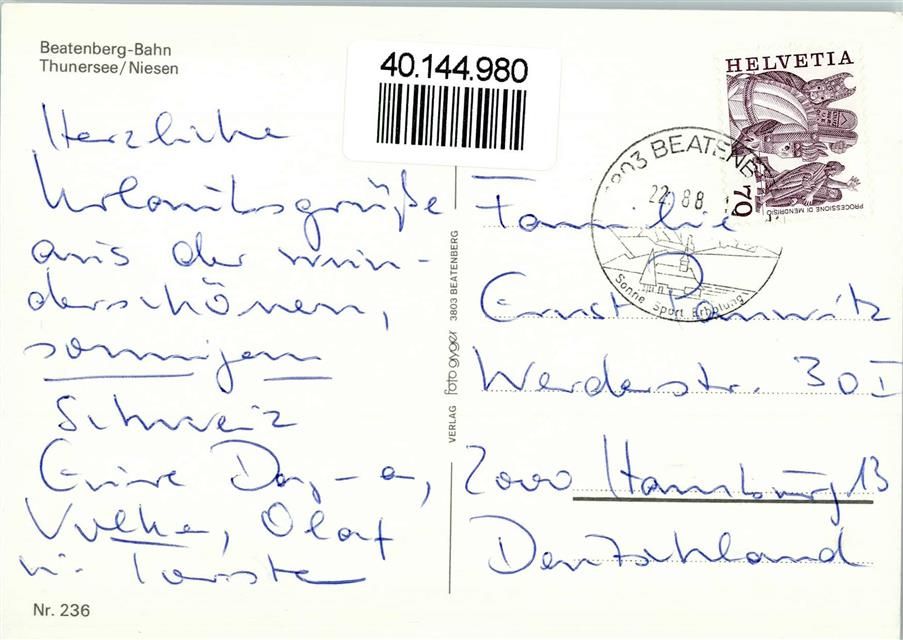 Beatenberg-Bahn
Thunersee/Niesen
40.144.980
HELVETIA
70
PROCESSIONE DI MENDRISIO
3803 BEATENB
22. 88
Sonne Sport Erholung
Herzliche
Urlaubsgrüße
aus der wun-
derschönen,
sonnigen
Schweiz
Eure
Volker, Olaf
u. Torsten
Familie
Ernst Pannwitz
Werderstr. 30 I
2000 Hamburg 13
Deutschland
VERLAG foto gyger 3803 BEATENBERG
Nr. 236